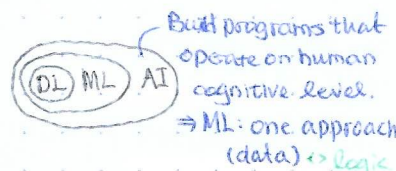 Build programs that
operate on human
cognitive level.
DL ML AI
⇒ ML: one approach
(data) <> logic